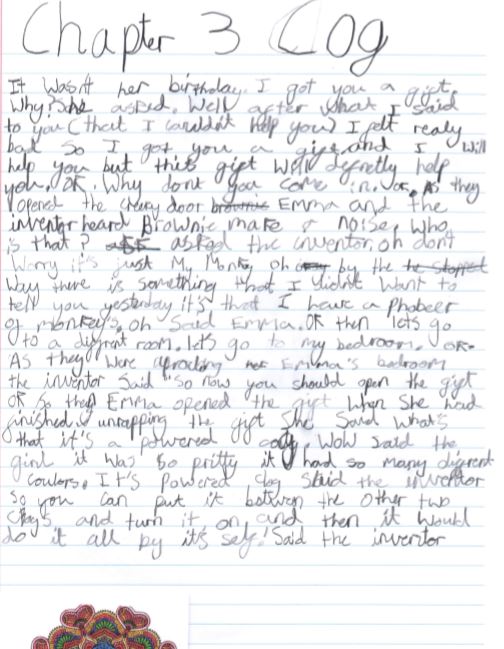 Chapter 3 Cog
It Wasn't her birthday. I got you a gift.
Why? She asked. Well after what I said
to you (that I couldn't help you) I felt realy
bad so I got you a gift and I will
help you but this gift will defnetly help
you. OK. Why dont you come in. OK. As they
opened the door brownie Emma and the
inventor heard Brownie make a noise, who
is that? asked the inventor. oh dont
Worry it's just My Monkey oh by the the stopped
Way there is something that I didn't want to
tell you yesterday it's that I have a Phobeer
of monkey's. oh Said Emma. OK then lets go
to a difgrat room. let's go to my bedroom. OK.
As they were aproching her Emma's bedroom
the inventor Said "so now you should open the gift
OK so then Emma opened the gift when She had
finished unrapping the gift She Said what's
that it's a powered WoW said the
girl it was so pretty it had so many digrent
coulors. It's Powered Clog Said the inventor
so you can put it between the other two
Clogs and turn it on, and then it would
do it all by it's self! Said the inventor